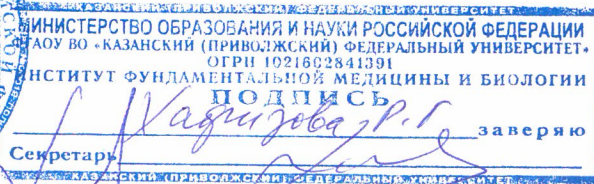 КАЗАНСКИЙ (ПРИВОЛЖСКИЙ) ФЕДЕРАЛЬНЫЙ УНИВЕРСИТЕТ
МИНИСТЕРСТВО ОБРАЗОВАНИЯ И НАУКИ РОССИЙСКОЙ ФЕДЕРАЦИИ
ФГАОУ ВО «КАЗАНСКИЙ (ПРИВОЛЖСКИЙ) ФЕДЕРАЛЬНЫЙ УНИВЕРСИТЕТ»
ОГРН 1021602841391
ИНСТИТУТ ФУНДАМЕНТАЛЬНОЙ МЕДИЦИНЫ И БИОЛОГИИ
ПОДПИСЬ
Хафизова Р.Г заверяю
Секретарь
КАЗАНСКИЙ (ПРИВОЛЖСКИЙ) ФЕДЕРАЛЬНЫЙ УНИВЕРСИТЕТ